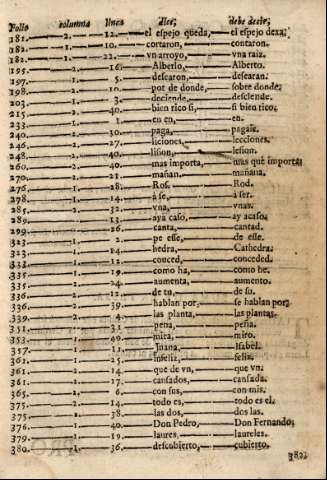 Folio columna linea dize, debe dezir,
181. 2. 12. el espejo queda, el espejo dexa.
182. 1. 10. cortaron, contaron.
182. 1. 22. vn arroyo, vna raiz.
195. 2. 16. Alberto, Alberto.
197. 1. 5. desearon, desearan.
198. 2. 10. pot de donde, sobre donde.
203. 1. 3. deciende, desciende.
215. 2. 40. bien rico si, si bien rico.
233. 1. 1. en en, en.
240. 1. 30. paga, pagais.
246. 1. 27. liciones, lecciones.
248. 2. 40. lision, lesion.
260. 2. 40. mas importa, mas que importa.
270. 2. 21. mañan. mañana.
276. 1. 28. Ros. Rod.
278. 1. 14. à se, à ser.
285. 2. 32. vna, vnas.
289. 2. 13. aya caso, ay acaso.
299. 1. 26. canta, cantad.
323. 1. 2. pe esse, de esse.
323. 1. 14. hedra, Cathedra.
333. 1. 12. conced, conceded.
335. 1. 19. como ha, como he.
335. 2. 24. aumenta, aumento.
336. 2. 12. de tu, de su.
336. 2. 39. hablan por, se hablan por.
339. 2. 4. las planta, las plantas.
351. 2. 31. pena, peña.
353. 1. 40. mira, miro.
357. 1. 11. Juana, Isabèl.
361. 2. 25. infeliz, feliz.
361. 2. 14. que de vn, que vn.
361. 2. 17. cansados, cansada.
365. 2. 6. con sus, con mis.
375. 2. 14. todo es, todo es el.
375. 2. 38. las dos, dos las.
376. 1. 40. Don Pedro, Don Fernando.
379. 1. 19. laures, laureles.
380. 1. 36. descobierto, cubierto.